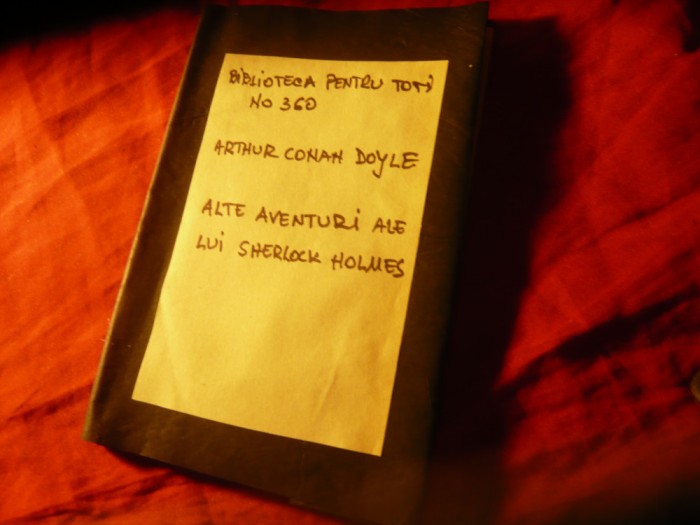 BIBLIOTECA PENTRU TOȚI
NO 360
ARTHUR CONAN DOYLE
ALTE AVENTURI ALE
LUI SHERLOCK HOLMES